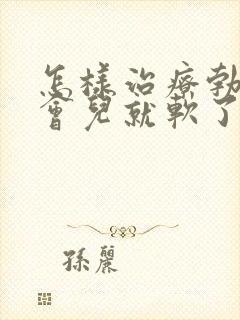 怎樣治療勃
會兒就軟了
孫麗